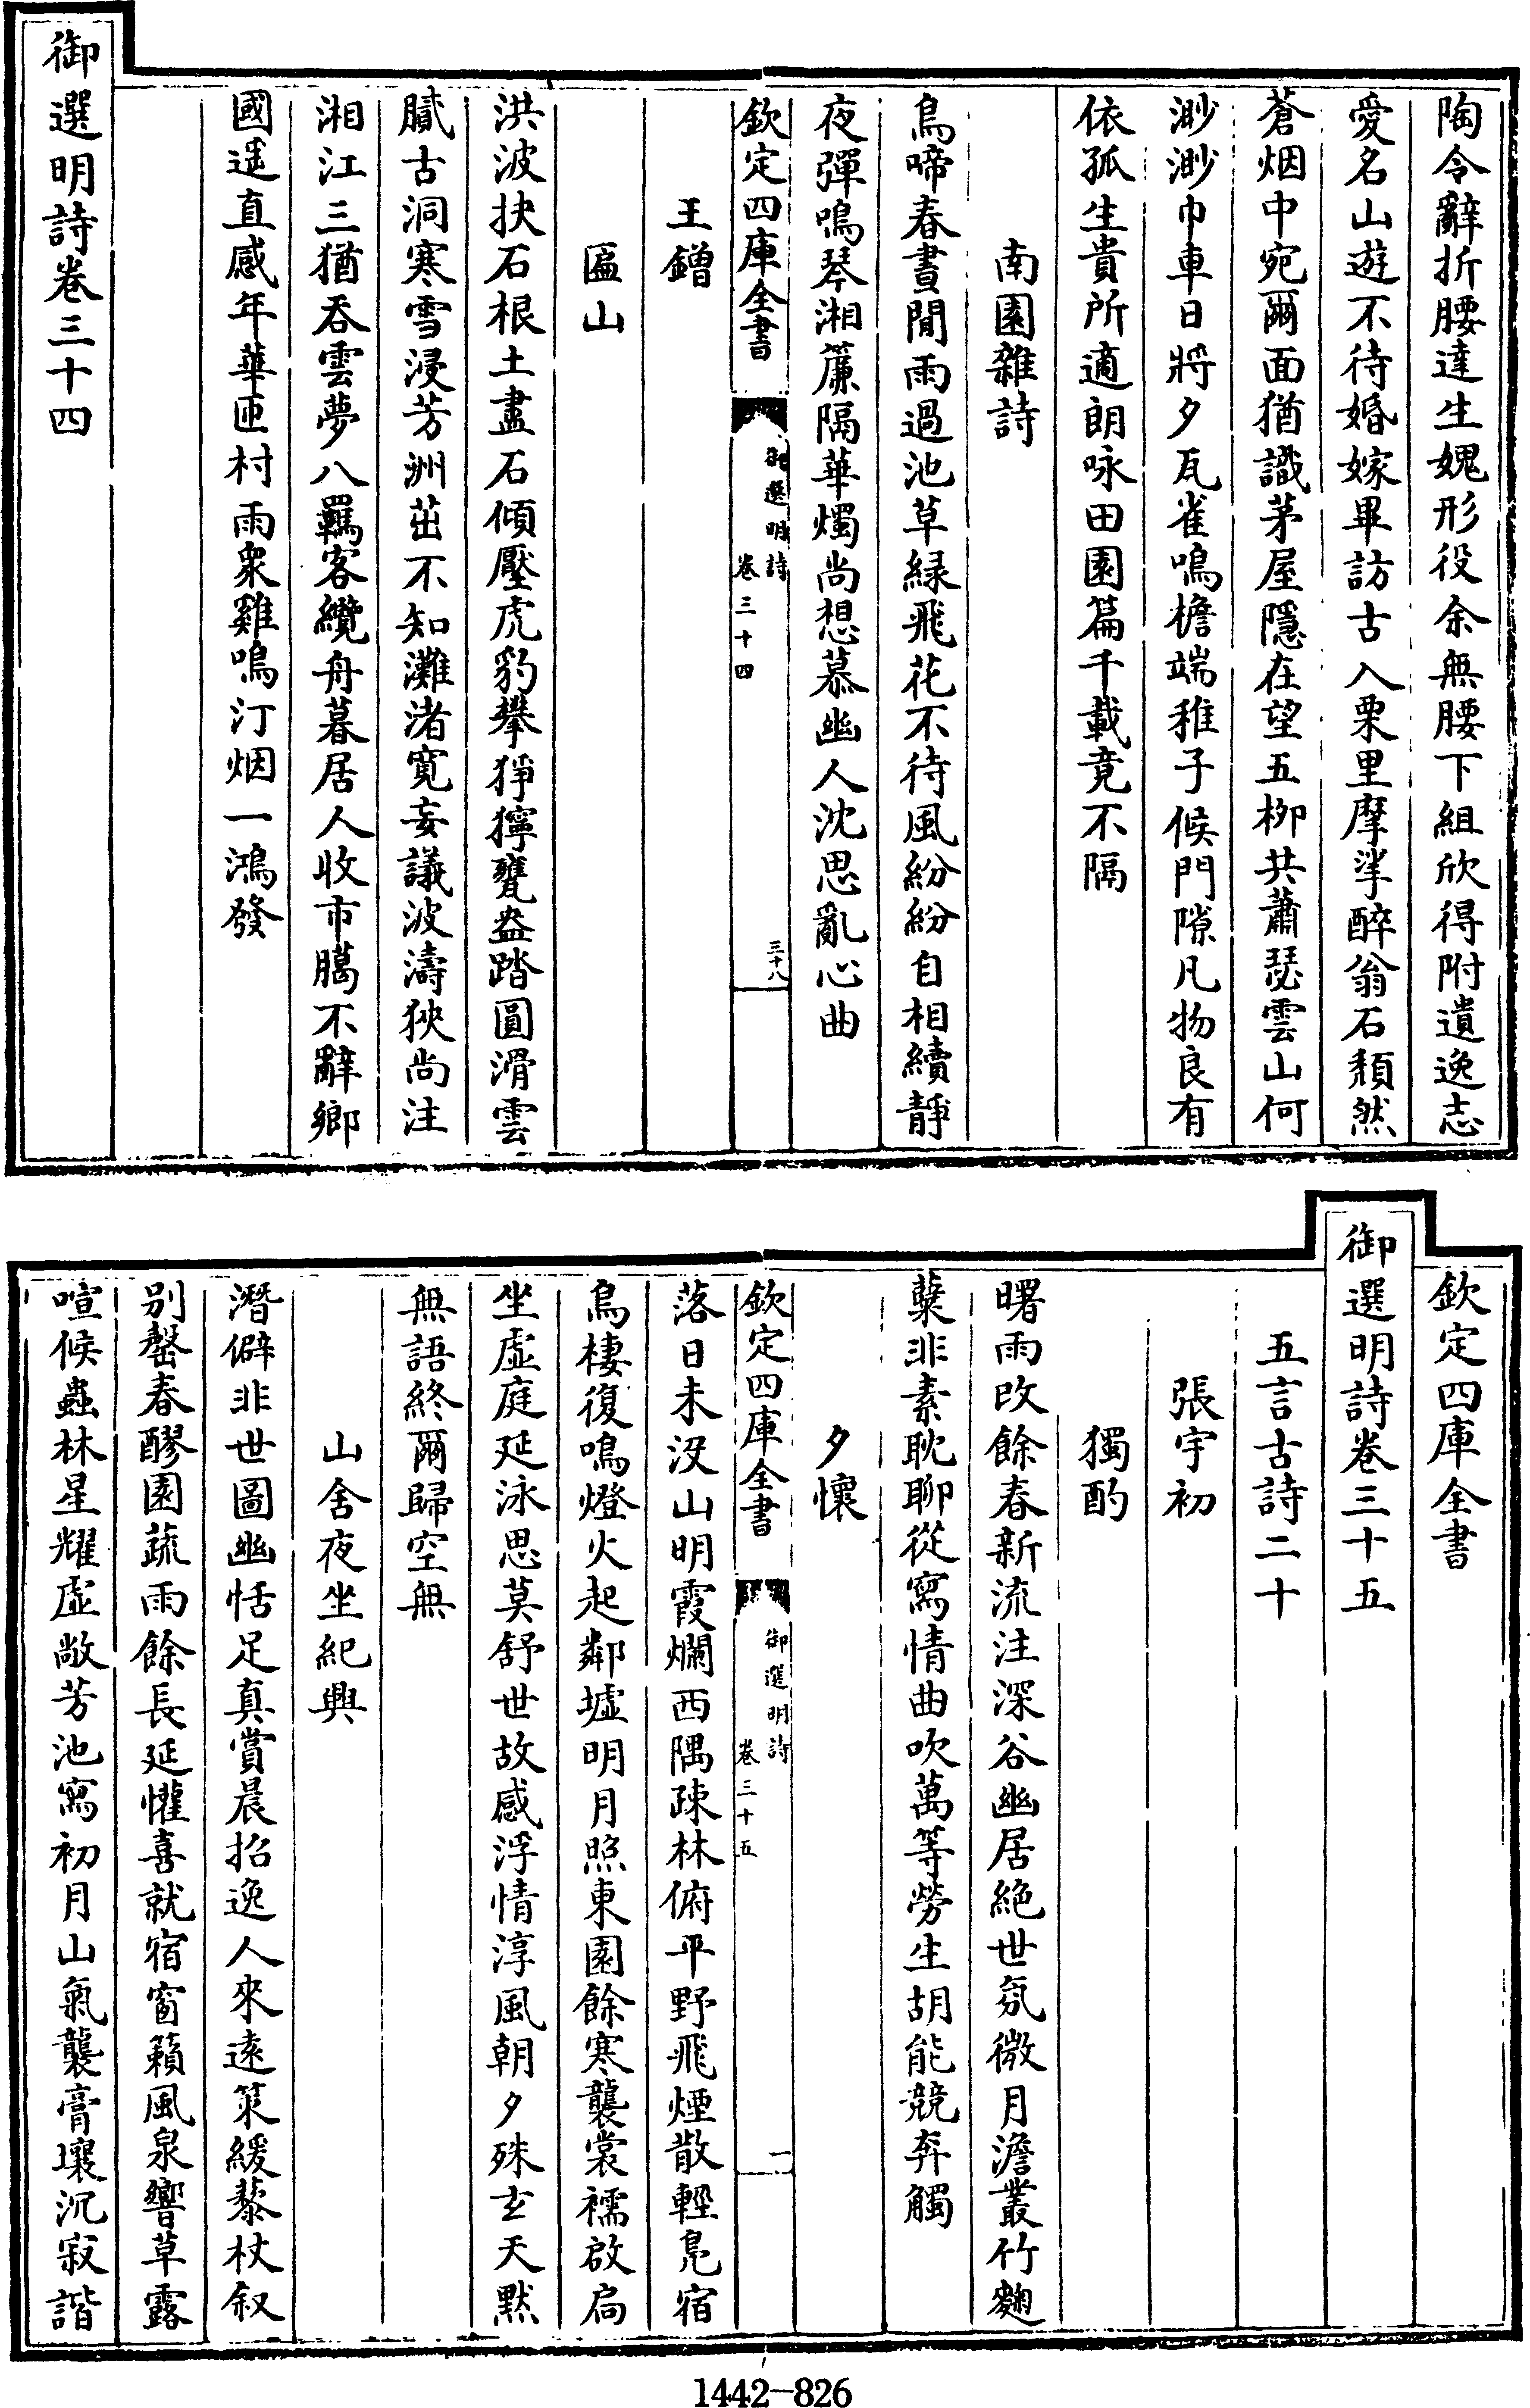 陶令辭折腰達生媿形役余無腰下組欣得附遺逸志
愛名山遊不待婚嫁畢訪古入栗里摩挲醉翁石頹然
蒼烟中宛爾面猶識茅屋隱在望五柳共蕭瑟雲山何
渺渺巾車日將夕瓦雀鳴檐端稚子候門隙凡物良有
依孤生貴所適朗咏田園篇千載竟不隔
南園雜詩
鳥啼春晝閒雨過池草緑飛花不待風紛紛自相續靜
夜彈鳴琴湘簾隔華燭尚想慕幽人沈思亂心曲
欽定四庫全書
御選明詩
卷三十四
三十八
王鏳
匾山
洪波抉石根土盡石傾壓虎豹攀猙獰甕盎踏圓滑雲
膩古洞寒雪浸芳洲茁不知灘渚寬妄議波濤狹尚注
湘江三猶吞雲夢八羈客纜舟暮居人收市臈不辭鄉
國遥直感年華匝村雨衆雞鳴汀烟一鴻發
御選明詩卷三十四
欽定四庫全書
御選明詩卷三十五
五言古詩二十
張宇初
獨酌
曙雨改餘春新流注深谷幽居絶世氛微月澹叢竹麴
蘖非素耽聊從寫情曲吹萬等勞生胡能競奔觸
夕懷
欽定四庫全書
御選明詩
卷三十五
一
落日未没山明霞爛西隅疎林俯平野飛煙散輕凫宿
鳥棲復鳴燈火起鄰墟明月照東園餘寒襲裳襦啟扃
坐虛庭延泳思莫舒世故感浮情淳風朝夕殊玄天黙
無語終爾歸空無
山舍夜坐紀興
潛僻非世圖幽恬足真賞晨招逸人來遠策緩藜杖叙
别罄春醪園蔬雨餘長延懽喜就宿窗籟風泉響草露
喧候蟲林星耀虛敞芳池寫初月山氣襲膏壤沉寂諧
1442—826